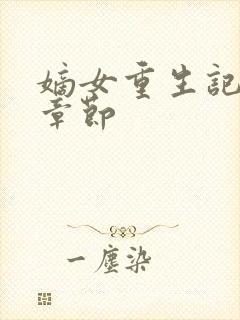 嫡女重生記
章節
一塵染